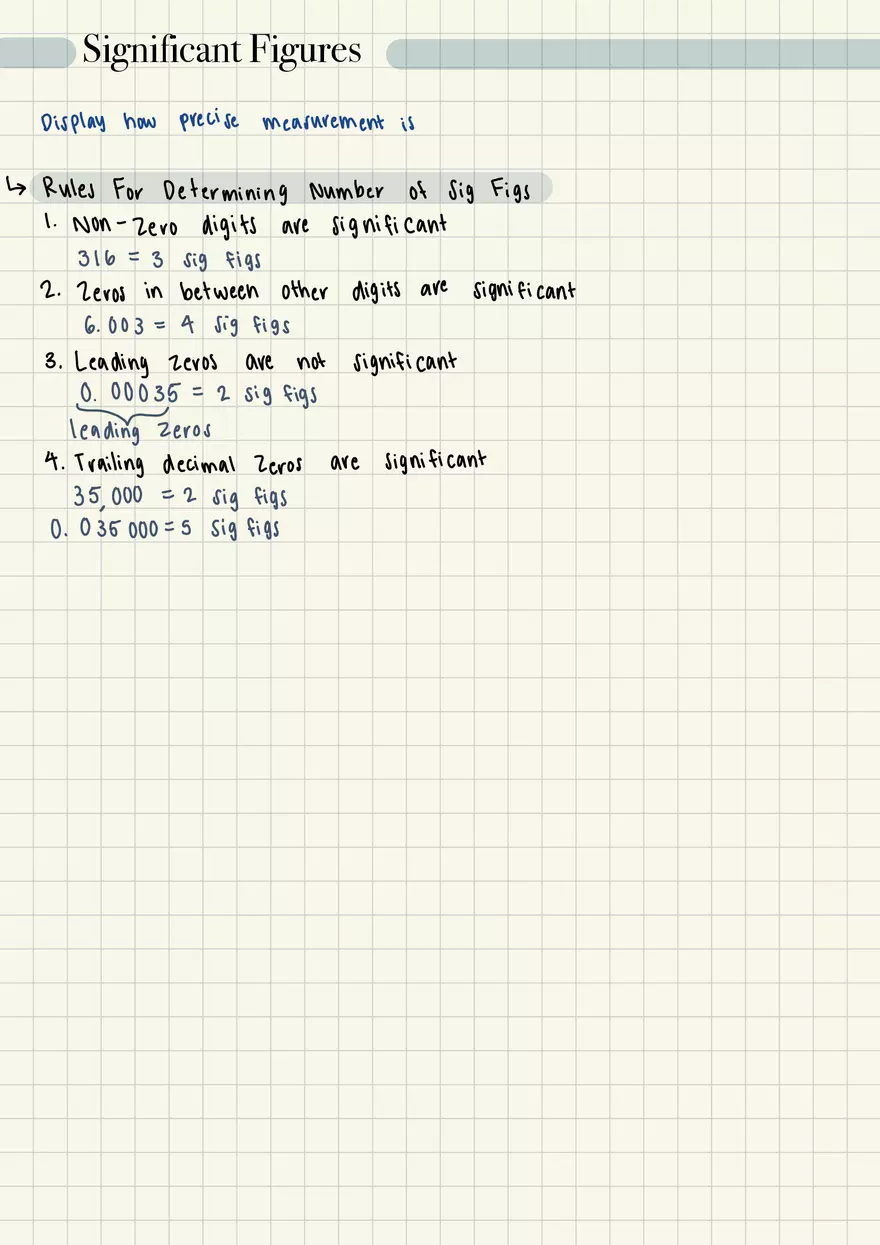 Significant Figures
Display how precise measurement is
↳ Rules For Determining Number of Sig Figs
1. Non-Zero digits are significant
316 = 3 sig figs
2. Zeros in between other digits are significant
6.003 = 4 sig figs
3. Leading zeros are not significant
0.00035 = 2 sig figs
leading zeros
4. Trailing decimal zeros are significant
35,000 = 2 sig figs
0.035000 = 5 sig figs